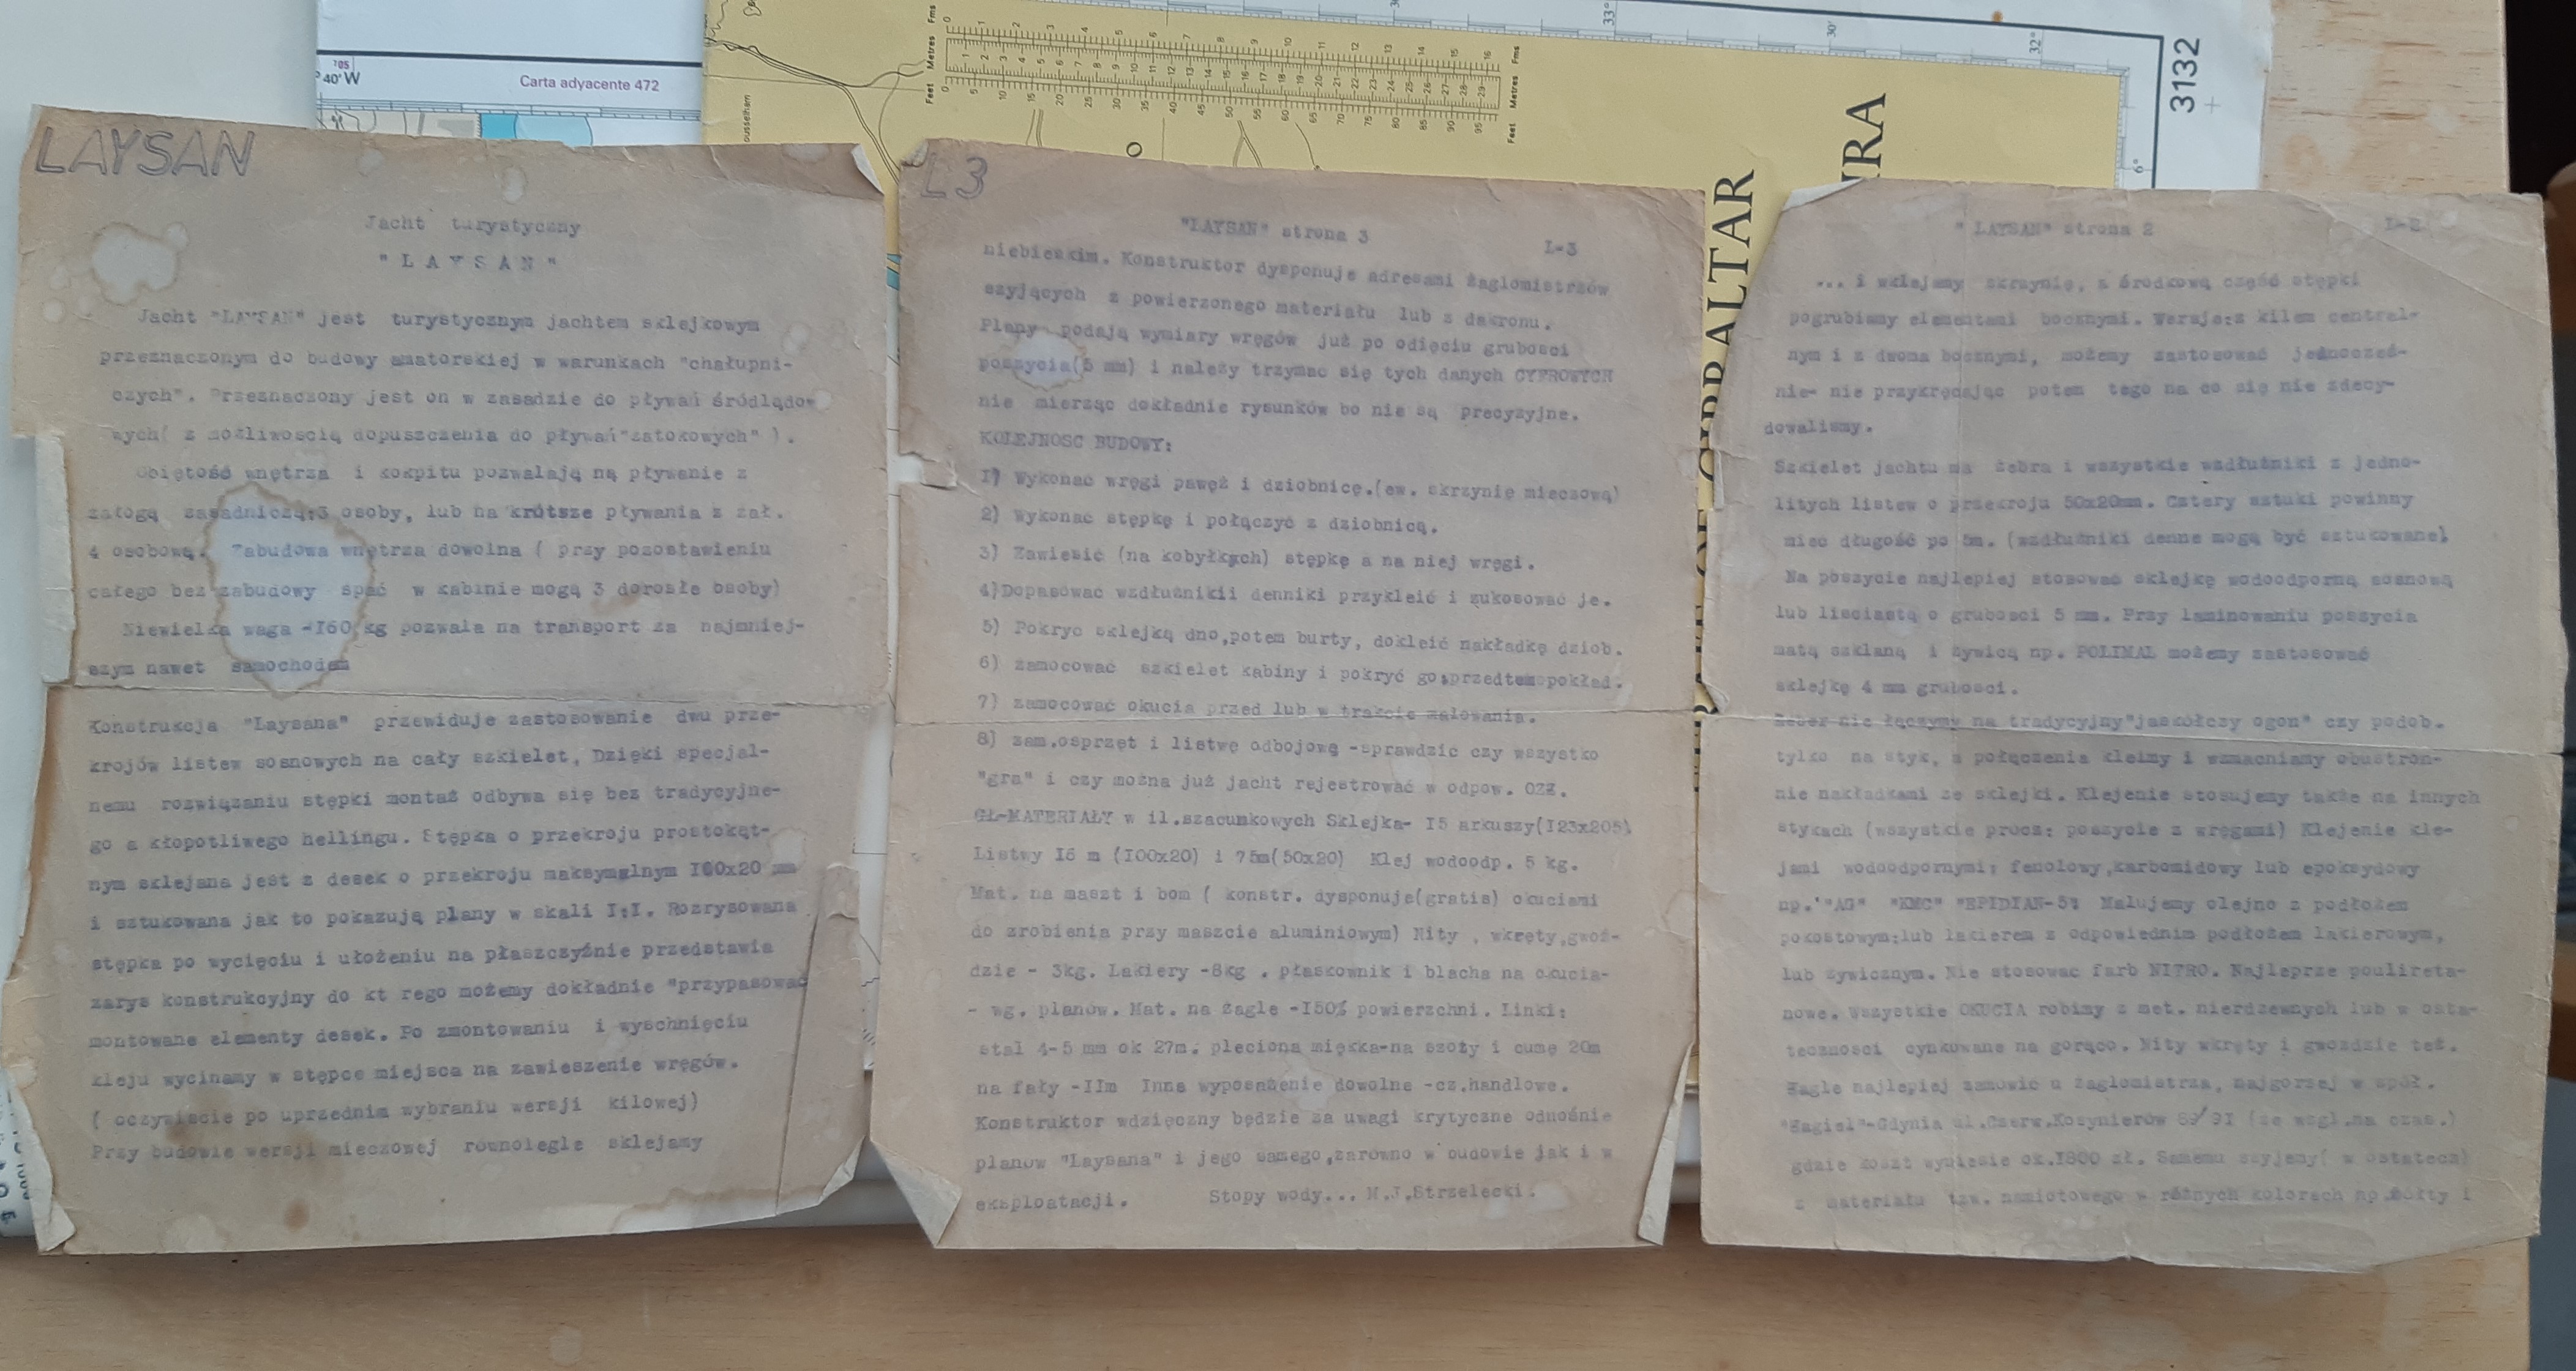 LAYSAN
Jacht turystyczny
"LAYSAN"
Jacht "LAYSAN" jest turystycznym jachtem sklejkowym
przeznaczonym do budowy amatorskiej w warunkach "chałupni-
czych". Przeznaczony jest on w zasadzie do pływań śródlądo-
wych( z możliwoscią dopuszczenia do pływań"zatokowych" ).
Objętość wnętrza i kokpitu pozwalają ną pływanie z
załogą zasadniczą:3 osoby, lub na krótsze pływania z zał.
4 osobową. Zabudowa wnętrza dowolna ( przy pozostawieniu
całego bez zabudowy spać w kabinie mogą 3 dorosłe osoby)
Niewielka waga -I60 kg pozwala na transport za najmniej-
szym nawet samochodem
Konstrukcja "Laysana" przewiduje zastosowanie dwu prze-
krojów listew sosnowych na cały szkielet, Dzięki specjal-
nemu rozwiązaniu stępki montaż odbywa się bez tradycyjne-
go a kłopotliwego hellingu. Stępka o przekroju prostokąt-
nym sklejana jest z desek o przekroju maksymalnym I00x20 mm
i sztukowana jak to pokazują plany w skali I:I. Rozrysowana
stępka po wycięciu i ułożeniu na płaszczyźnie przedstawia
zarys konstrukcyjny do kt rego możemy dokładnie "przypasować
montowane elementy desek. Po zmontowaniu i wyschnięciu
kleju wycinamy w stępce miejsca na zawieszenie wręgów.
( oczywiscie po uprzednim wybraniu wersji kilowej)
Przy budowie wersji mieczowej równolegle sklejamy
L3
"LAYSAN" strona 3
L-3
niebieskim. Konstruktor dysponuje adresami żaglomistrzów
szyjących z powierzonego materiału lub z dakronu.
Plany podają wymiary wręgów już po odjęciu grubosci
poszycia(5 mm) i należy trzymac się tych danych CYFROWYCH
nie mierząc dokładnie rysunków bo nie są precyzyjne.
KOLEJNOSC BUDOWY:
I) Wykonac wręgi pawęż i dziobnicę.(ew. skrzynię mieczową)
2) Wykonac stępkę i połączyć z dziobnicą.
3) Zawiesić (na kobyłkach) stępkę a na niej wręgi.
4)Dopasować wzdłużnikii denniki przykleić i zukosować je.
5) Pokryc sklejką dno,potem burty, dokleić nakładkę dziob.
6) zamocować szkielet kabiny i pokryć go,przedtem pokład.
7) zamocować okucia przed lub w trakcie malowania.
8) zam.osprzęt i listwę odbojową -sprawdzic czy wszystko
"gra" i czy można już jacht rejestrować w odpow. OZŻ.
GŁ-MATERIAŁY w il.szacunkowych Sklejka- I5 arkuszy(I23x205)
Listwy I6 m (I00x20) i 75m(50x20) Klej wodoodp. 5 kg.
Mat. na maszt i bom ( konstr. dysponuje(gratis) okuciami
do zrobienia przy maszcie aluminiowym) Nity , wkręty,gwoź-
dzie - 3kg. Lakiery -8kg . płaskownik i blacha na okucia-
- wg. planów. Mat. na żagle -I50% powierzchni. Linki:
stal 4-5 mm ok 27m. pleciona miękka-na szoty i cumę 20m
na fały -IIm Inne wyposażenie dowolne -cz.handlowe.
Konstruktor wdzięczny będzie za uwagi krytyczne odnośnie
planów "Laysana" i jego samego,zarówno w budowie jak i w
eksploatacji. Stopy wody... M.J.Strzelecki.
" LAYSAN" strona 2
L-2
... i wklejamy skrzynię, a środkową część stępki
pogrubiamy elementami bocznymi. Wersje:z kilem central-
nym i z dwoma bocznymi, możemy zastosować jednocześ-
nie- nie przykręcając potem tego na co się nie zdecy-
dowalismy.
Szkielet jachtu ma żebra i wszystkie wzdłużniki z jedno-
litych listew o przekroju 50x20mm. Cztery sztuki powinny
miec długość po 5m. (wzdłużniki denne mogą być sztukowane)
Na poszycie najlepiej stosować sklejkę wodoodporną sosnową
lub lisciastą o grubosci 5 mm. Przy laminowaniu poszycia
matą szklaną i żywicą np. POLIMAL możemy zastosować
sklejkę 4 mm grubosci.
Żeber nie łączymy na tradycyjny"jaskółczy ogon" czy podob.
tylko na styk, a połączenia kleimy i wzmacniamy obustron-
nie nakładkami ze sklejki. Klejenie stosujemy także na innych
stykach (wszystkie prócz: poszycie z wręgami) Klejenie kle-
jami wodoodpornymi: fenolowy,karbomidowy lub epoksydowy
np. "AG" "KMC" "EPIDIAN-5" Malujemy olejno z podłożem
pokostowym:lub lakierem z odpowiednim podłożem lakierowym,
lub żywicznym. Nie stosować farb NITRO. Najleprze poulireta-
nowe. Wszystkie OKUCIA robimy z met. nierdzewnych lub w osta-
teczności cynkowane na gorąco. Nity wkręty i gwoździe też.
Żagle najlepiej zamówić u żaglomistrza, najgorzej w spół.
"Żagiel"-Gdynia ul.Czerw.Kosynierów 89/9I (ze wzgl.na czas.)
gdzie koszt wyniesie ok.I800 zł. Samemu szyjemy( w ostatecz)
z materiału tzw. namiotowego w różnych kolorach np.żółty i
Carta adyacente 472
40' W
Feet Metres Fms
Feet Metres Fms
ousselham
3132